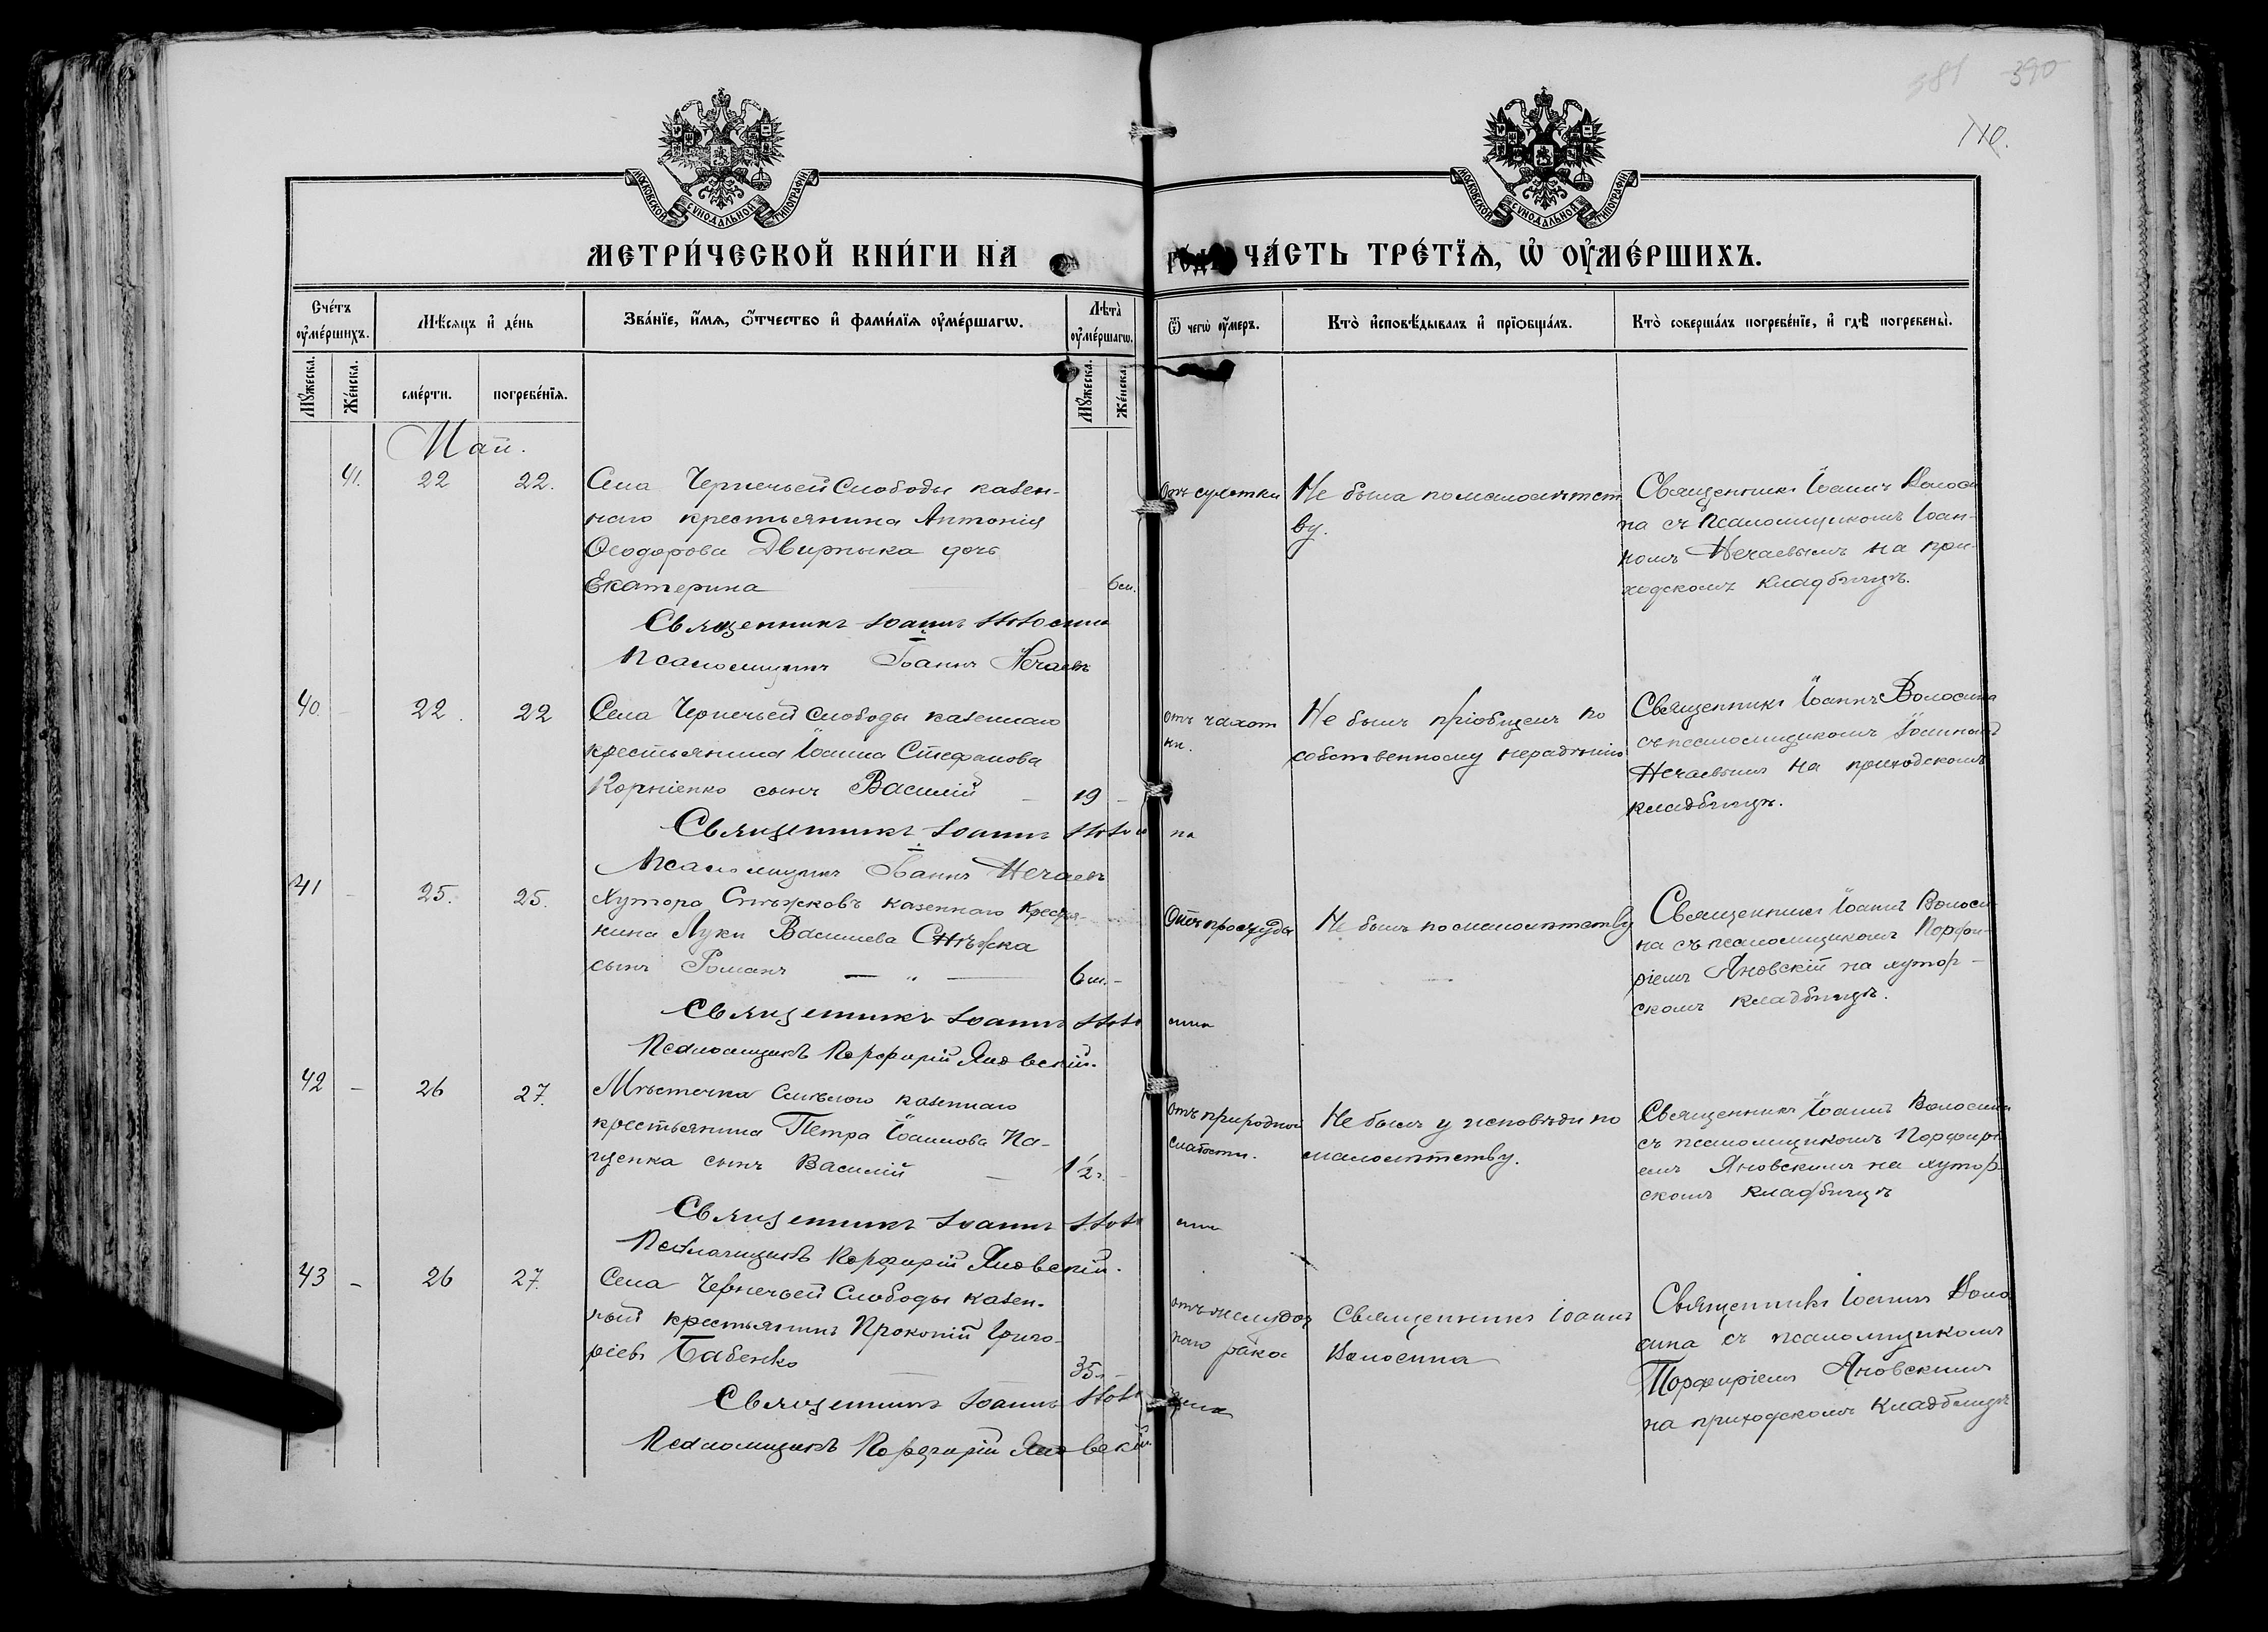 381 390
110.
МОСКОВСКОЙ СѴНОДАЛЬНОЙ ТИПОГРАФІИ
МОСКОВСКОЙ СѴНОДАЛЬНОЙ ТИПОГРАФІИ
МЕТРИ́ЧЕСКОЙ КНИ́ГИ НА
ЧА́СТЬ ТРЕ́ТЇѦ, Ѡ҆ ОУ҆МЕ́РШИХЪ.
Сче́тъ оу҆ме́ршихъ.
Мѣ́сяцъ и҆ де́нь
Зва́нїе, и҆́мѧ, ѻ҆́тчество и҆ фами́лїѧ оу҆ме́ршагѡ.
Лѣта̀ оу҆ме́ршагѡ.
Ѿ чегѡ̀ оу҆́меръ.
Кто̀ и҆сповѣ́дывалъ и҆ прїобща́лъ.
Кто̀ соверша́лъ погребе́нїе, и҆ гдѣ̀ погребены̀.
Мꙋ́жеска.
Же́нска.
сме́рти.
погребе́нїѧ.
Мꙋ́жеска.
Же́нска.
Май.
41. 22 22.
Села Чернечьей Слободы казен-
наго крестьянина Антонія
Ѳеодорова Двирныка дочь
Екатерина 6 м.
Священникъ Іоаннъ Волосина
Псаломщикъ Іоаннъ Нечаевъ
Отъ сухотки
Не была по малолѣтст
ву.
Священникъ Іоаннъ Волоси
на съ псаломщикомъ Іоан-
номъ Нечаевымъ на при-
ходскомъ кладбищѣ.
40. 22. 22
Села Чернечьей слободы казеннаго
крестьянина Іоанна Стефанова
Корніенко сынъ Василій — 19 —
Священникъ Іоаннъ Волосина
Псаломщикъ Іоаннъ Нечаевъ
отъ чахот
ки.
Не былъ пріобщенъ по
собственному нерадѣнію
Священникъ Іоаннъ Волосина
съ псаломщикомъ Іоанномъ
Нечаевымъ на приходскомъ
кладбищѣ.
41 — 25. 25.
Хутора Снѣжковъ казеннаго крестья-
нина Луки Васильева Снѣжка
сынъ Романъ — „ — 6 м. —
Священникъ Іоаннъ Волосина
Псаломщикъ Порфирій Яновскій.
Отъ простуды
Не былъ по малолѣтству
Священникъ Іоаннъ Волоси
на съ псаломщикомъ Порфи-
ріемъ Яновскій на хутор-
скомъ кладбищѣ.
42 — 26 27.
Мѣстечка Смѣлого казеннаго
крестьянина Петра Іоаннова Па-
щенка сынъ Василій — 1/2 г. —
Священникъ Іоаннъ Волосина
Псаломщикъ Порфирій Яновскій.
отъ природной
слабости.
Не былъ у исповѣди по
малолѣтству.
Священникъ Іоаннъ Волосина
съ псаломщикомъ Порфирі
емъ Яновскимъ на хутор-
скомъ кладбищѣ
43 — 26 27.
Села Чернечьей Слободы казен-
ный крестьянинъ Прокопій Григо-
ріевъ Бабенко — 35 л —
Священникъ Іоаннъ Волосина
Псаломщикъ Порфирій Яновскій
отъ желудоч
наго рака
Священникъ Іоаннъ
Волосина
Священникъ Іоаннъ Воло
сина съ псаломщикомъ
Порфиріемъ Яновскимъ
на приходскомъ кладбищѣ